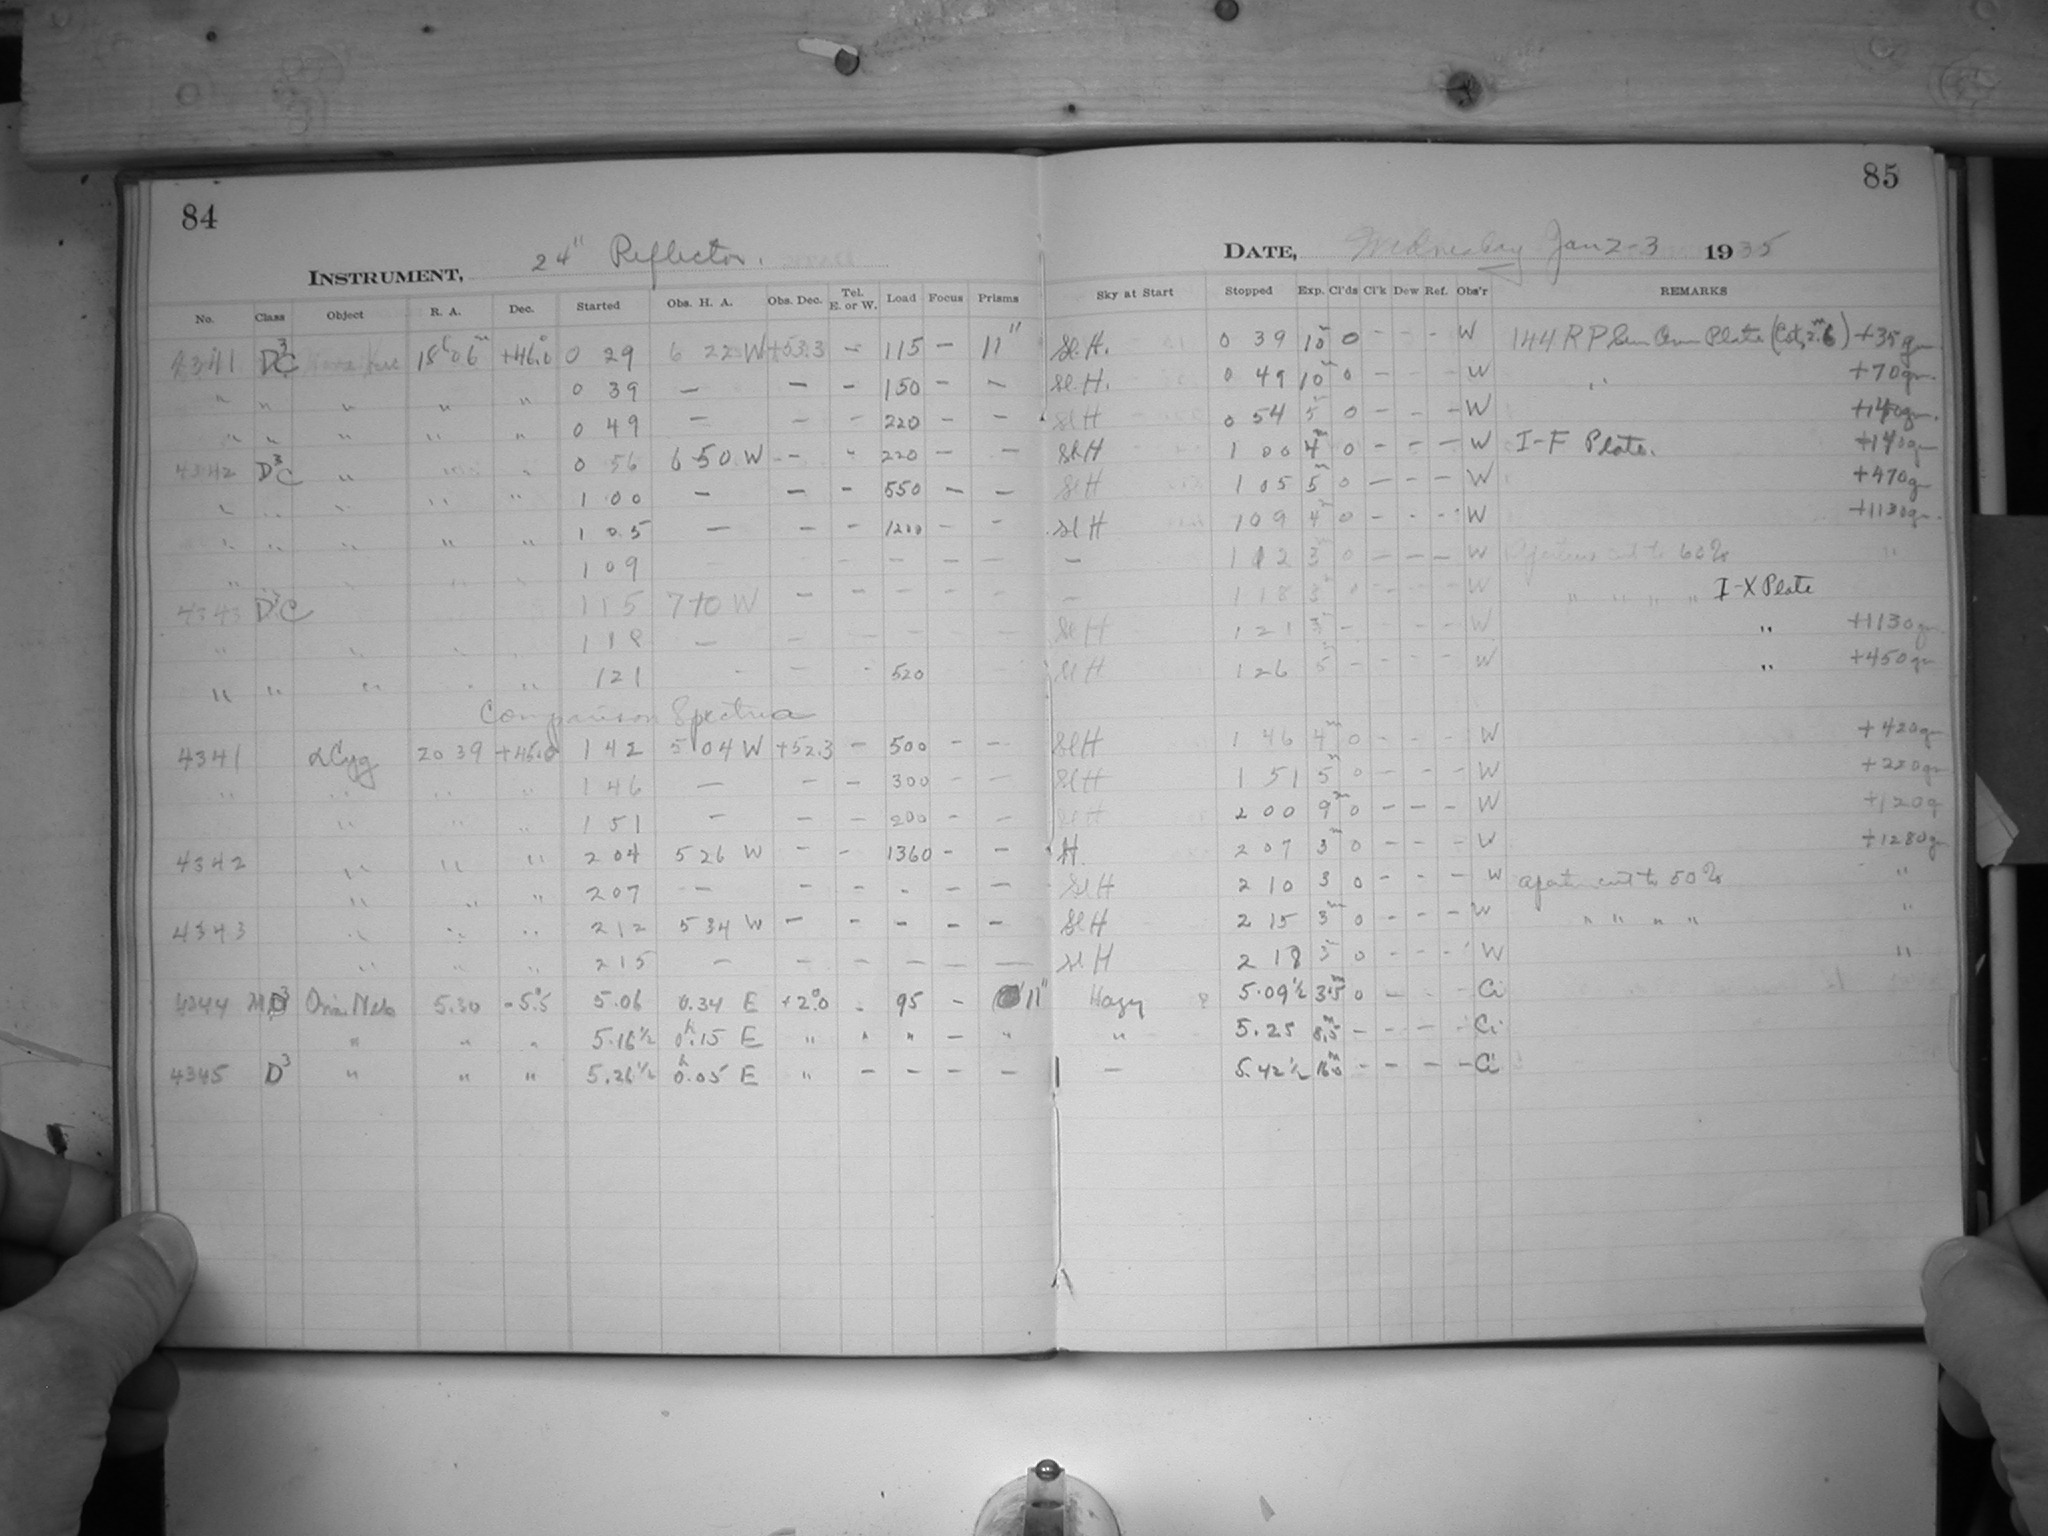 84
INSTRUMENT, 24" Reflector.
No. Class Object R. A. Dec. Started Obs. H. A. Obs. Dec. Tel. E. or W. Load Focus Prisms
4341 D³C 18h 06m +46.0 0 29 6 22 W +53.3 — 115 — 11"
" " " " " 0 39 — — — 150 — —
" " " " " 0 49 — — — 220 — —
4342 D³C " " " 0 56 6 50 W — - 220 — —
" " " " " 1 00 — — — 550 — —
" " " " " 1 05 — — — 1200 — —
" " " " " 1 09 — — — — — —
4343 D³C 1 15 7 10 W — — — — —
" " " " 1 18 — — — — — —
" " " " " 1 21 - — - 520 — —
Comparison Spectra
4341 α Cyg 20 39 +45.0 1 42 5 04 W +52.3 — 500 — —
" " " " 1 46 — — — 300 — —
" " " 1 51 — — — 200 — —
4342 " " " 2 04 5 26 W — — 1360 — —
" " " 2 07 — — — - — —
4343 " " " 2 12 5 34 W — — — — —
" " " 2 15 — — — — — —
4344 D³ Ori. Neb 5.30 -5°.5 5.06 0.34 E +2°.0 - 95 — 11"
" " " 5.16½ 0h.15 E " " " — "
4345 D³ " " " 5.26½ 0h.05 E " — — — —
85
DATE, Wednesday Jan 2-3 1935
Sky at Start Stopped Exp. Cl'ds Cl'k Dew Ref. Obs'r REMARKS
Sl. H. 0 39 10m 0 — — — W 144 R P Plate (Est, 2m.6) +35 gm
Sl. H. 0 49 10m 0 — — — W " +70 gm.
Sl H 0 54 5m 0 — — — W +140 gm.
Sl H 1 00 4m 0 — — — W I-F Plate. +140 gm
Sl H 1 05 5m 0 — — — W +470 gm
Sl H 1 09 4m 0 — - - W +1130 gm.
— 1 12 3m 0 — — — W Aperture cut to 60% "
— 1 18 3m 0 — — — W " " " " I-X Plate
Sl H 1 21 3m — — — — W " +1130 gm
Sl H 1 26 5m — — — — W " +450 gm
Sl H 1 46 4m 0 — — — W +420 gm
Sl H 1 51 5m 0 — — — W +220 gm
Sl H 2 00 9m 0 — — — W +120 g
H. 2 07 3m 0 — — — W +1280 gm
Sl H 2 10 3 0 — — — W apert. cut to 50% "
Sl H 2 15 3m 0 — — — W " " " " "
Sl H 2 18 3m 0 — — — W "
Hazy 5.09½ 3.5m 0 — - - Ci
" 5.25 8.5m — — — — Ci
— 5.42½ 16.0m — — — — Ci